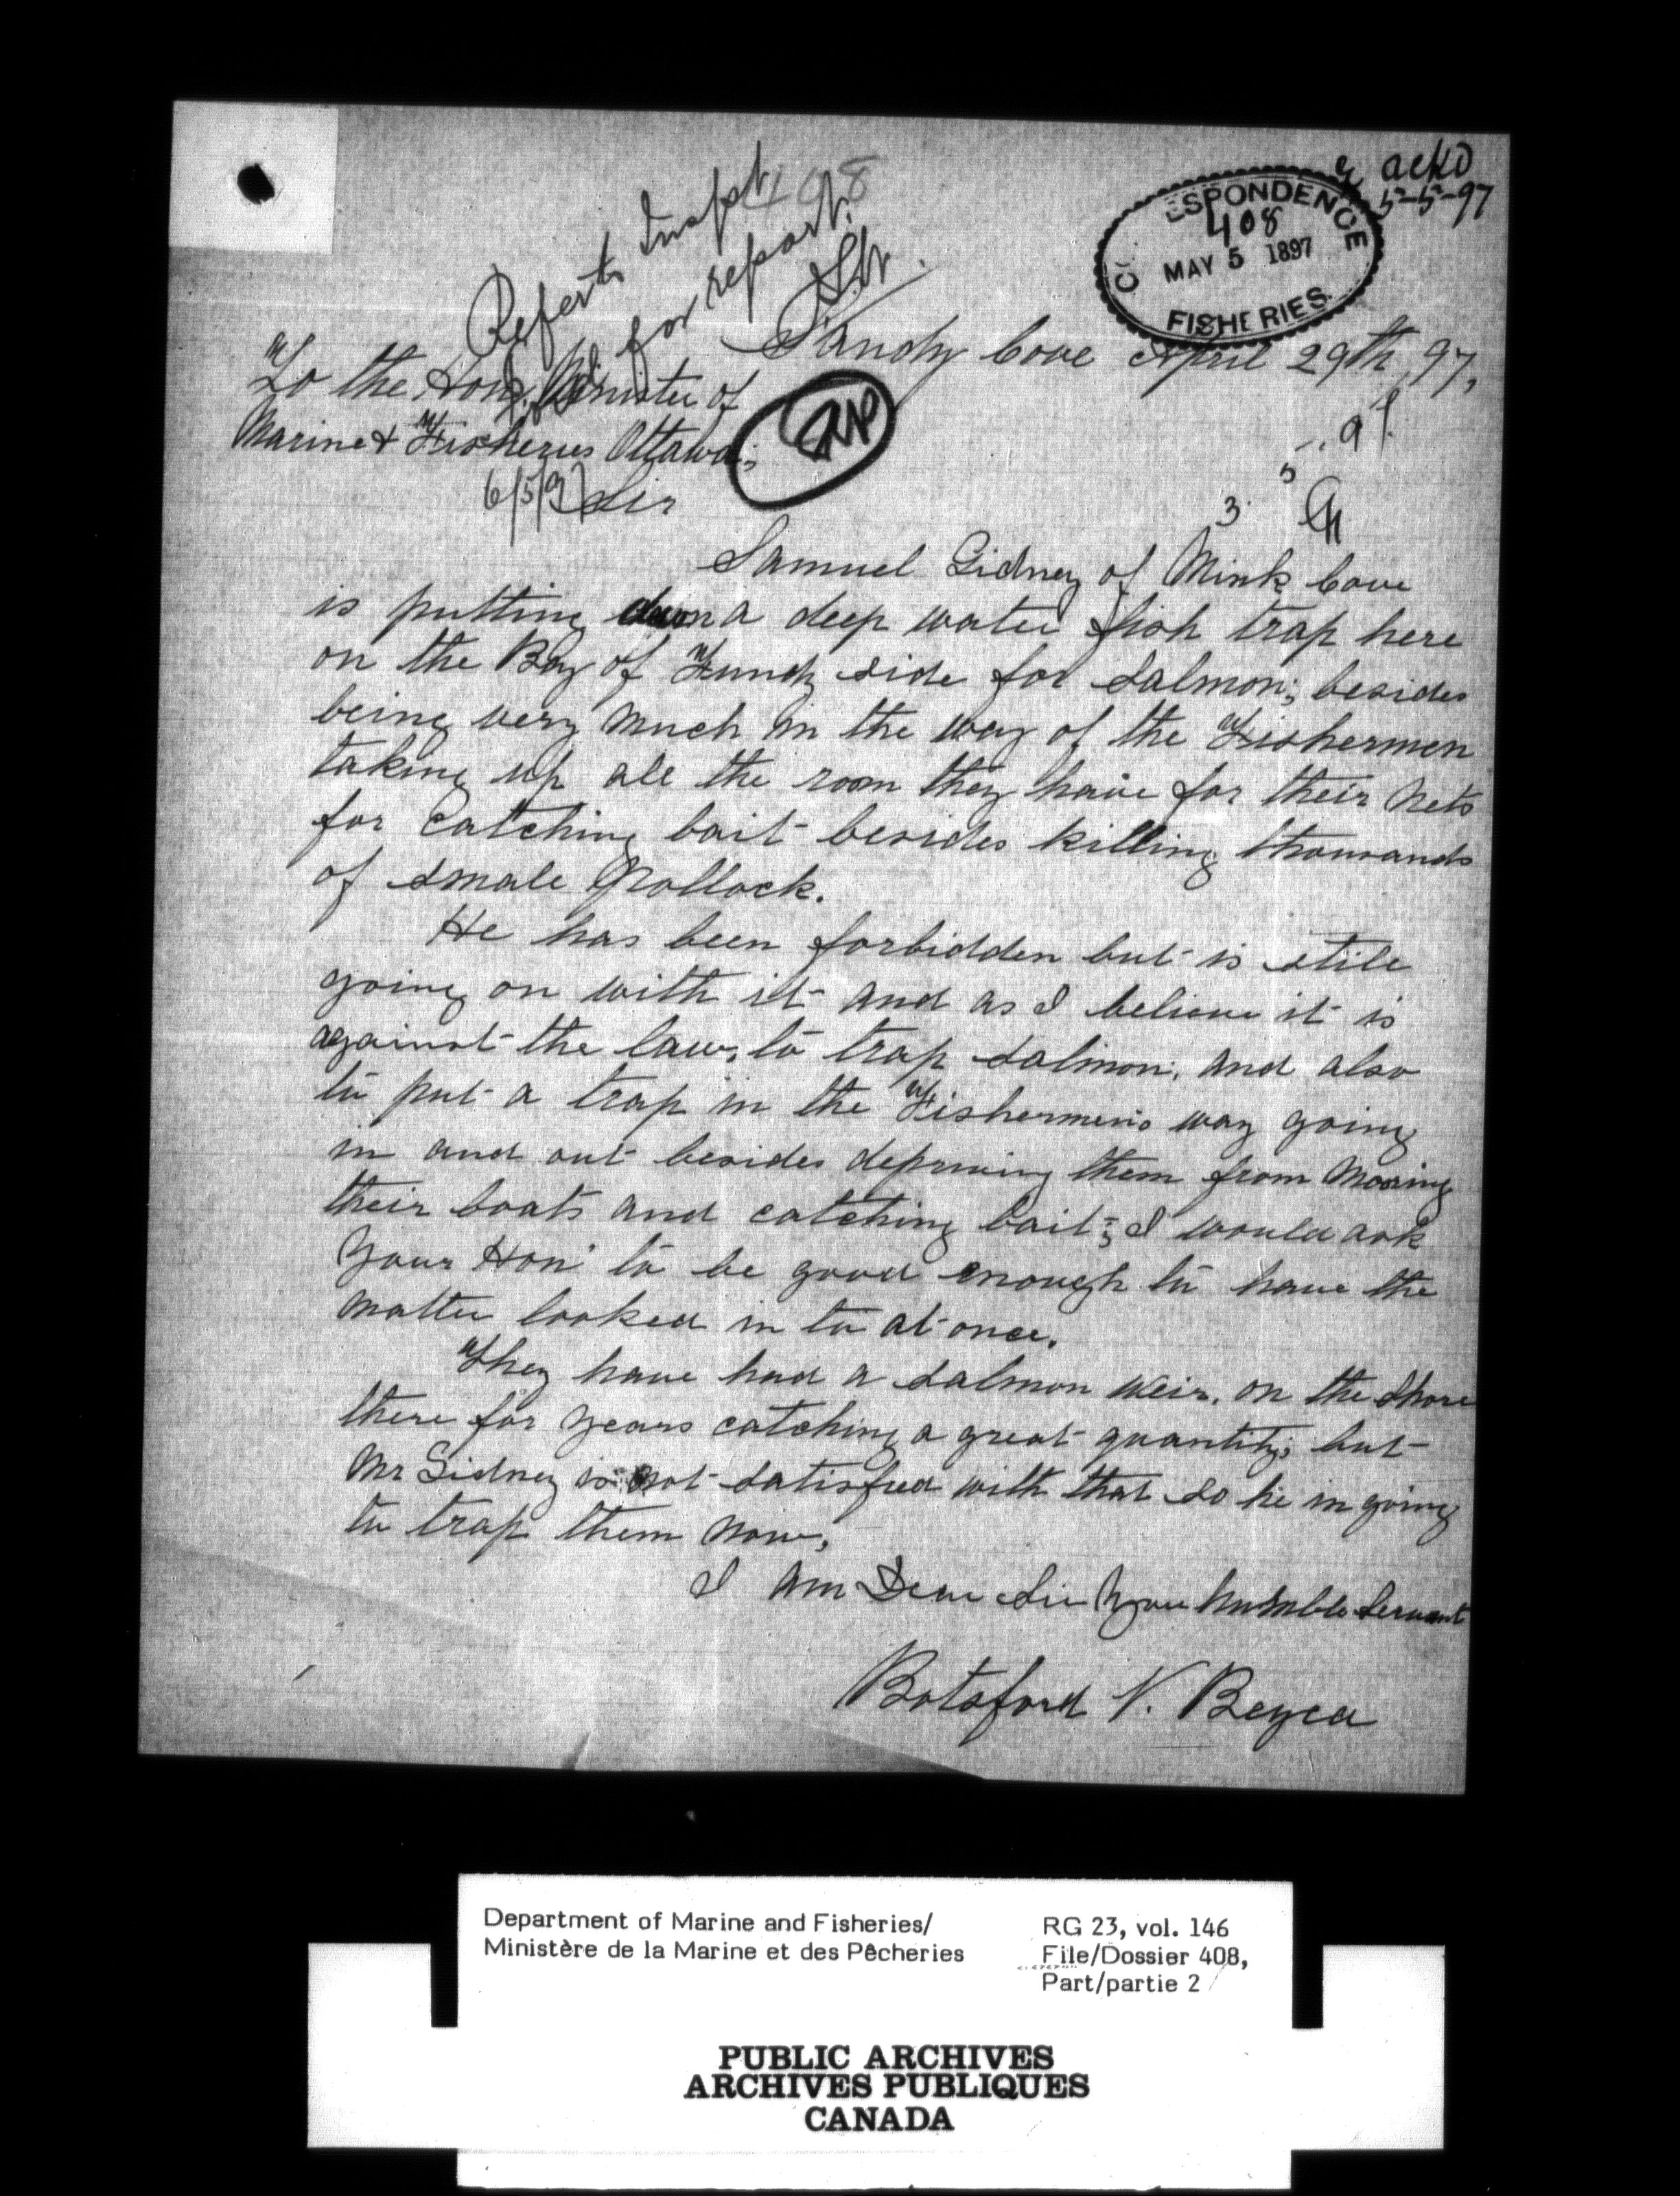 408
ackd
5-5-97
Refer to Inspr
for report.
CORRESPONDENCE
408
MAY 5 1897
FISHERIES.
Sandy Cove April 29th, 97,
To the Hon. Minister of
Marine & Fisheries Ottawa;
6/5/97
Sir
3. 5. 97
Samuel Gidney of Mink Cove
is putting down a deep water fish trap here
on the Bay of Fundy side for salmon; besides
being very much in the way of the Fishermen
taking up all the room they have for their Nets
for catching bait besides killing thousands
of small Pollock.
He has been forbidden but is still
going on with it and as I believe it is
against the law, to trap salmon, and also
to put a trap in the Fishermens way going
in and out besides depriving them from Mooring
their boats and catching bait; I would ask
Your Hon' to be good enough to have the
matter looked in to at once.
They have had a salmon Weir, on the Shore
there for years catching a great quantity; but
Mr Gidney is not satisfied with that so he in going
to trap them now,
I am Dear Sir Your humble Servant
Botsford V. Beyea
Department of Marine and Fisheries/
Ministère de la Marine et des Pêcheries
RG 23, vol. 146
File/Dossier 408,
Part/partie 2
PUBLIC ARCHIVES
ARCHIVES PUBLIQUES
CANADA